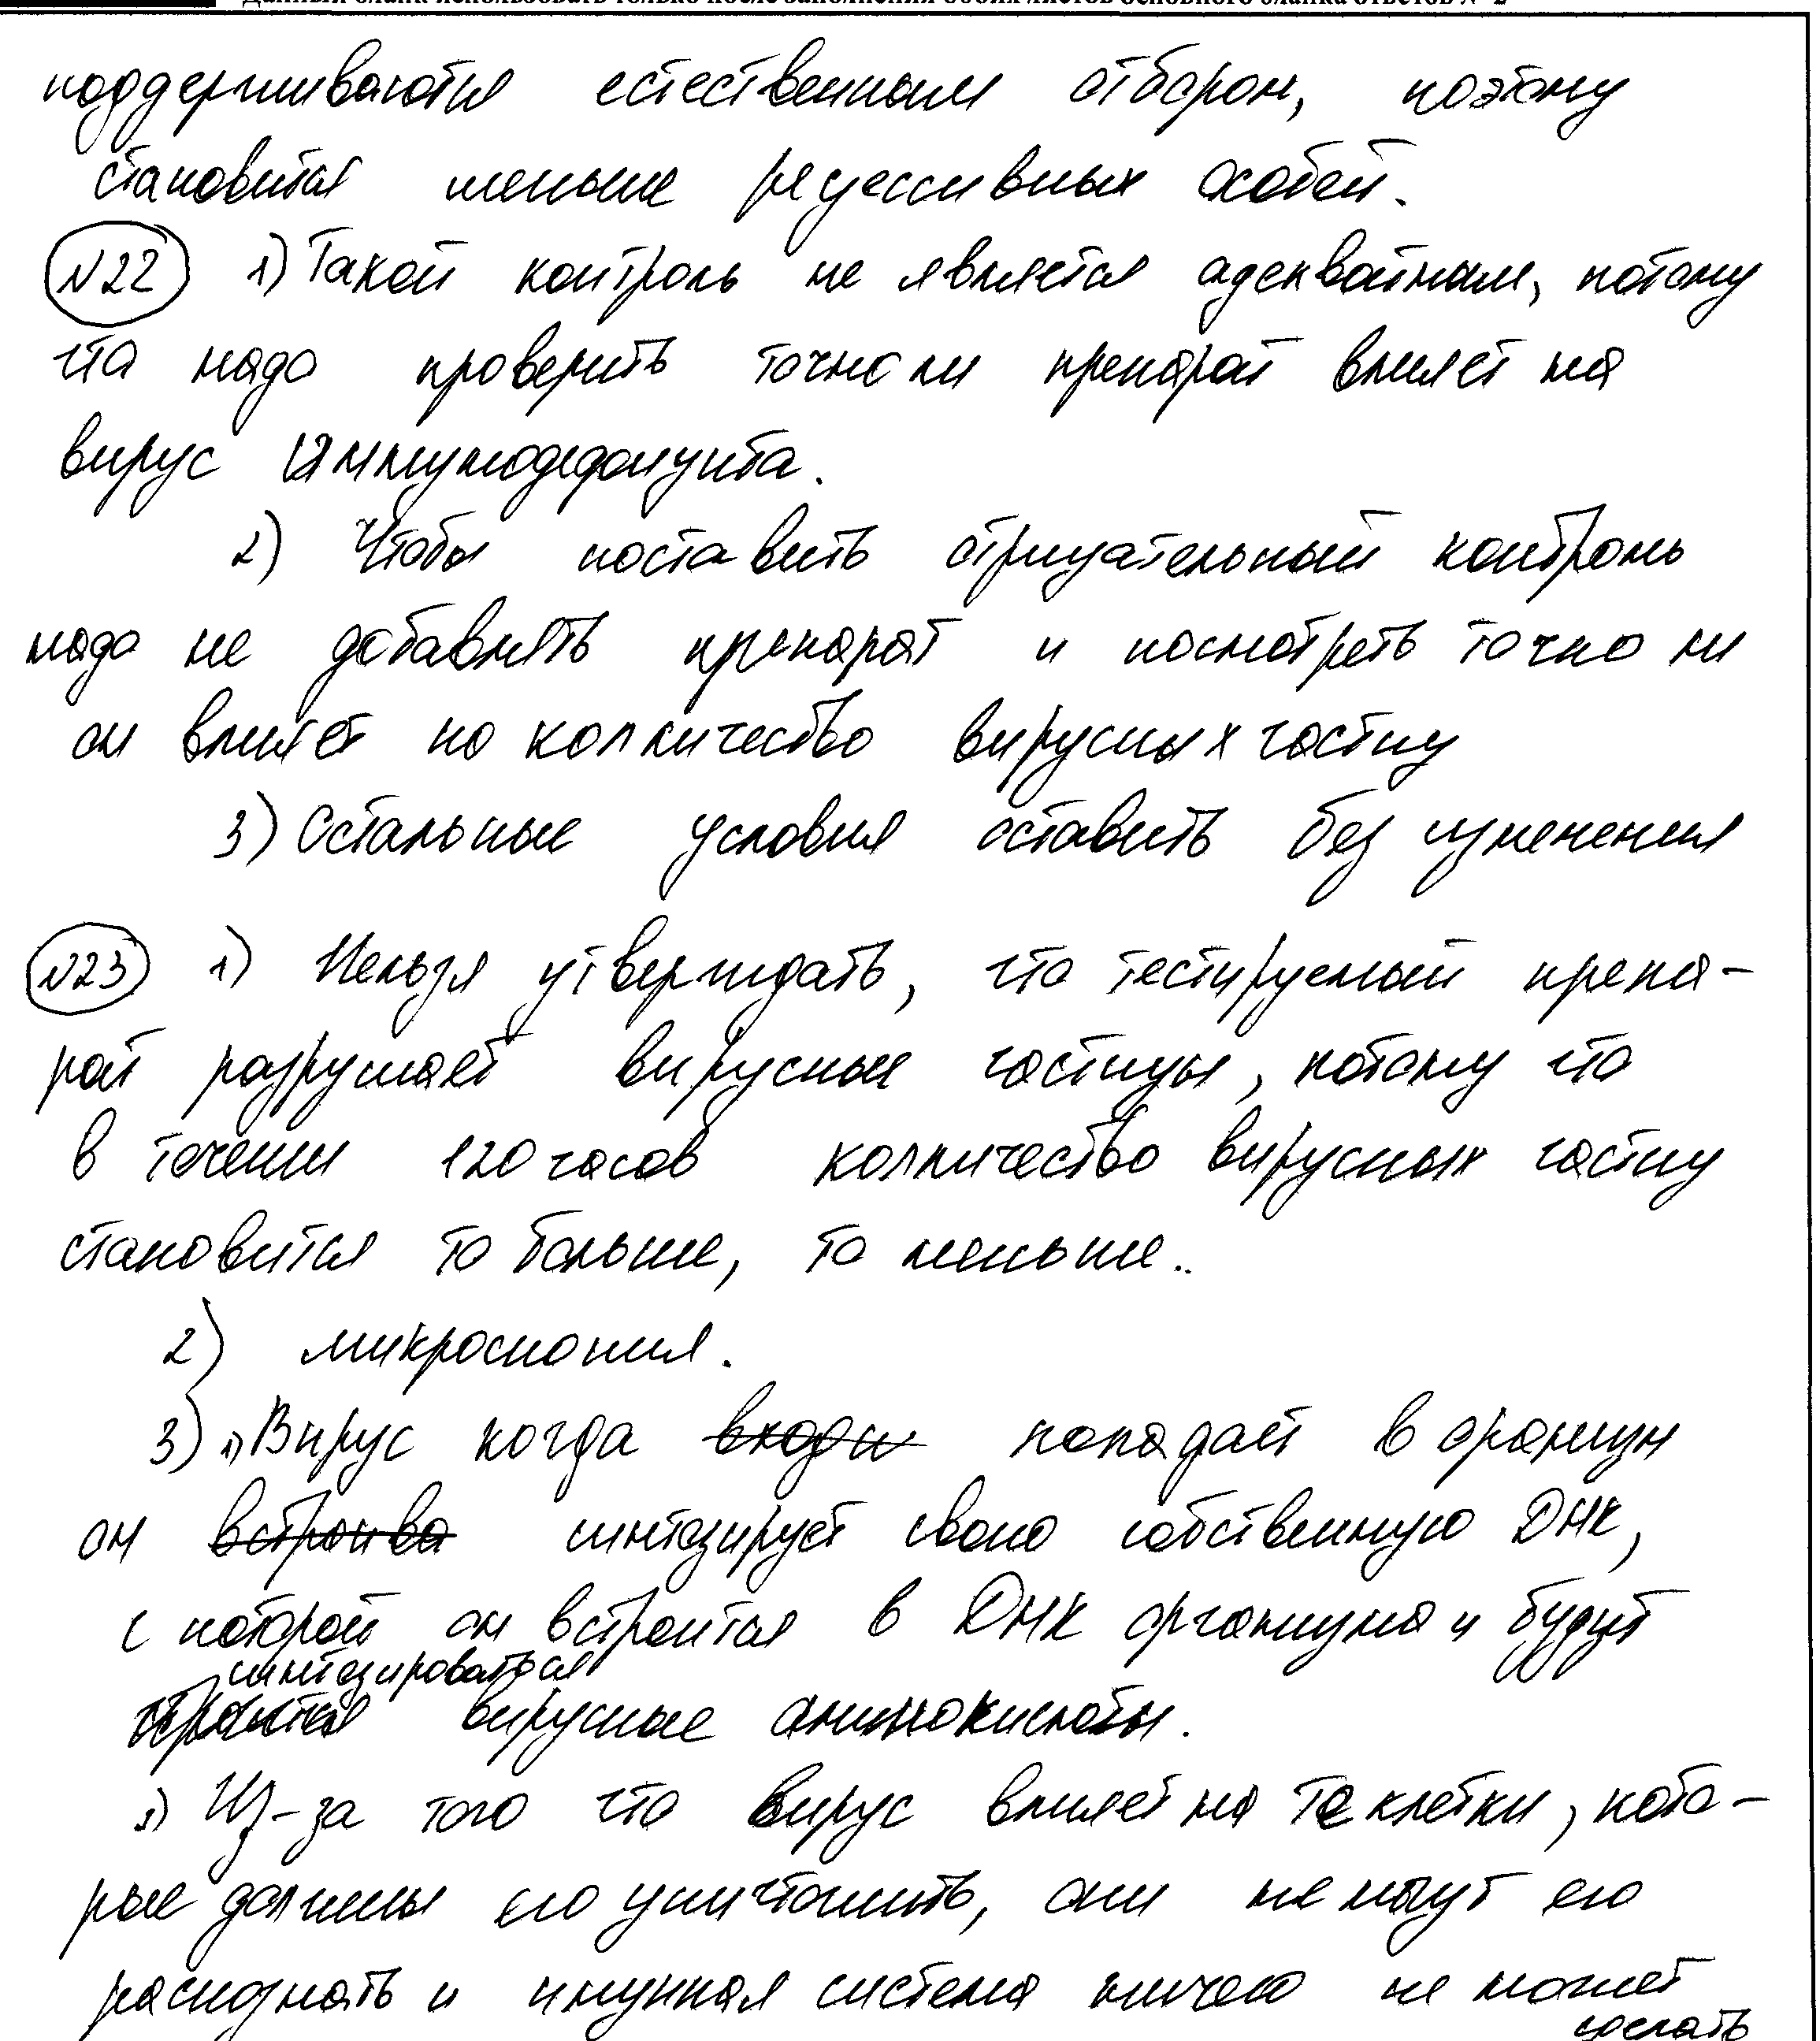 Данный бланк использовать только после заполнения обоих листов основного бланка ответов № 2
поддерживаются естественным отбором, поэтому
становится меньше рецессивных особей.
№22 1) Такой контроль не является адекватным, потому
что надо проверить точно ли препарат влияет на
вирус иммунодефицита.
2) Чтобы поставить отрицательный контроль
надо не добавлять препарат и посмотреть точно ли
он влияет на колличество вирусных частиц
3) Остальные условия оставить без изменения
№23 1) Нельзя утверждать, что тестируемый препа-
рат разрушает вирусные частицы, потому что
в течении 120 часов колличество вирусных частиц
становится то больше, то меньше..
2) микроскопия.
3) 1) Вирус когда входи попадает в организм
он встроива синтезирует свою собственную ДНК,
с которой он встроится в ДНК организма и будут
синтезироваться
строится вирусные аминокислоты.
2) Из-за того что вирус влияет на те клетки, кото-
рые должны его уничтожить, они не могут его
распознать и имунная система ничего не может
сделать